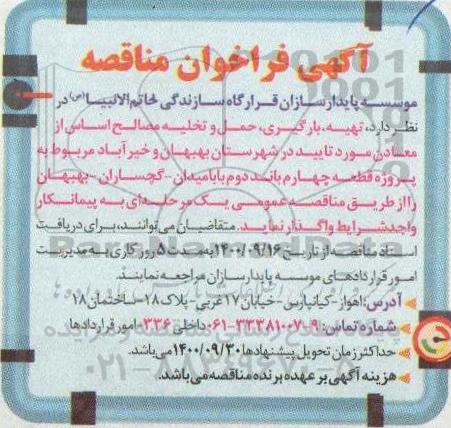 آگهی فراخوان مناقصه
موسسه پایدارسازان قرارگاه سازندگی خاتم‌الانبیا(ص) در
نظر دارد، تهیه، بارگیری، حمل و تخلیه مصالح اساس از
معادن مورد تایید در شهرستان بهبهان و خیرآباد مربوط به
پروژه قطعه چهارم باند دوم بابامیدان - گچساران - بهبهان
را از طریق مناقصه عمومی یک مرحله‌ای به پیمانکار
واجدشرایط واگذار نماید. متقاضیان می‌توانند، برای دریافت
اسناد مناقصه از تاریخ ۱۴۰۰/۰۹/۱۶ به مدت ۵ روز کاری به مدیریت
امور قراردادهای موسسه پایدارسازان مراجعه نمایند.
آدرس: اهواز - کیانپارس - خیابان ۱۷ غربی - پلاک ۱۸ - ساختمان ۱۸
شماره تماس: ۹-۳۳۳۸۱۰۰۷-۰۶۱ داخلی ۰۳۳۶ امور قراردادها
حداکثر زمان تحویل پیشنهادها ۱۴۰۰/۰۹/۳۰ می‌باشد.
هزینه آگهی بر عهده برنده مناقصه می‌باشد.